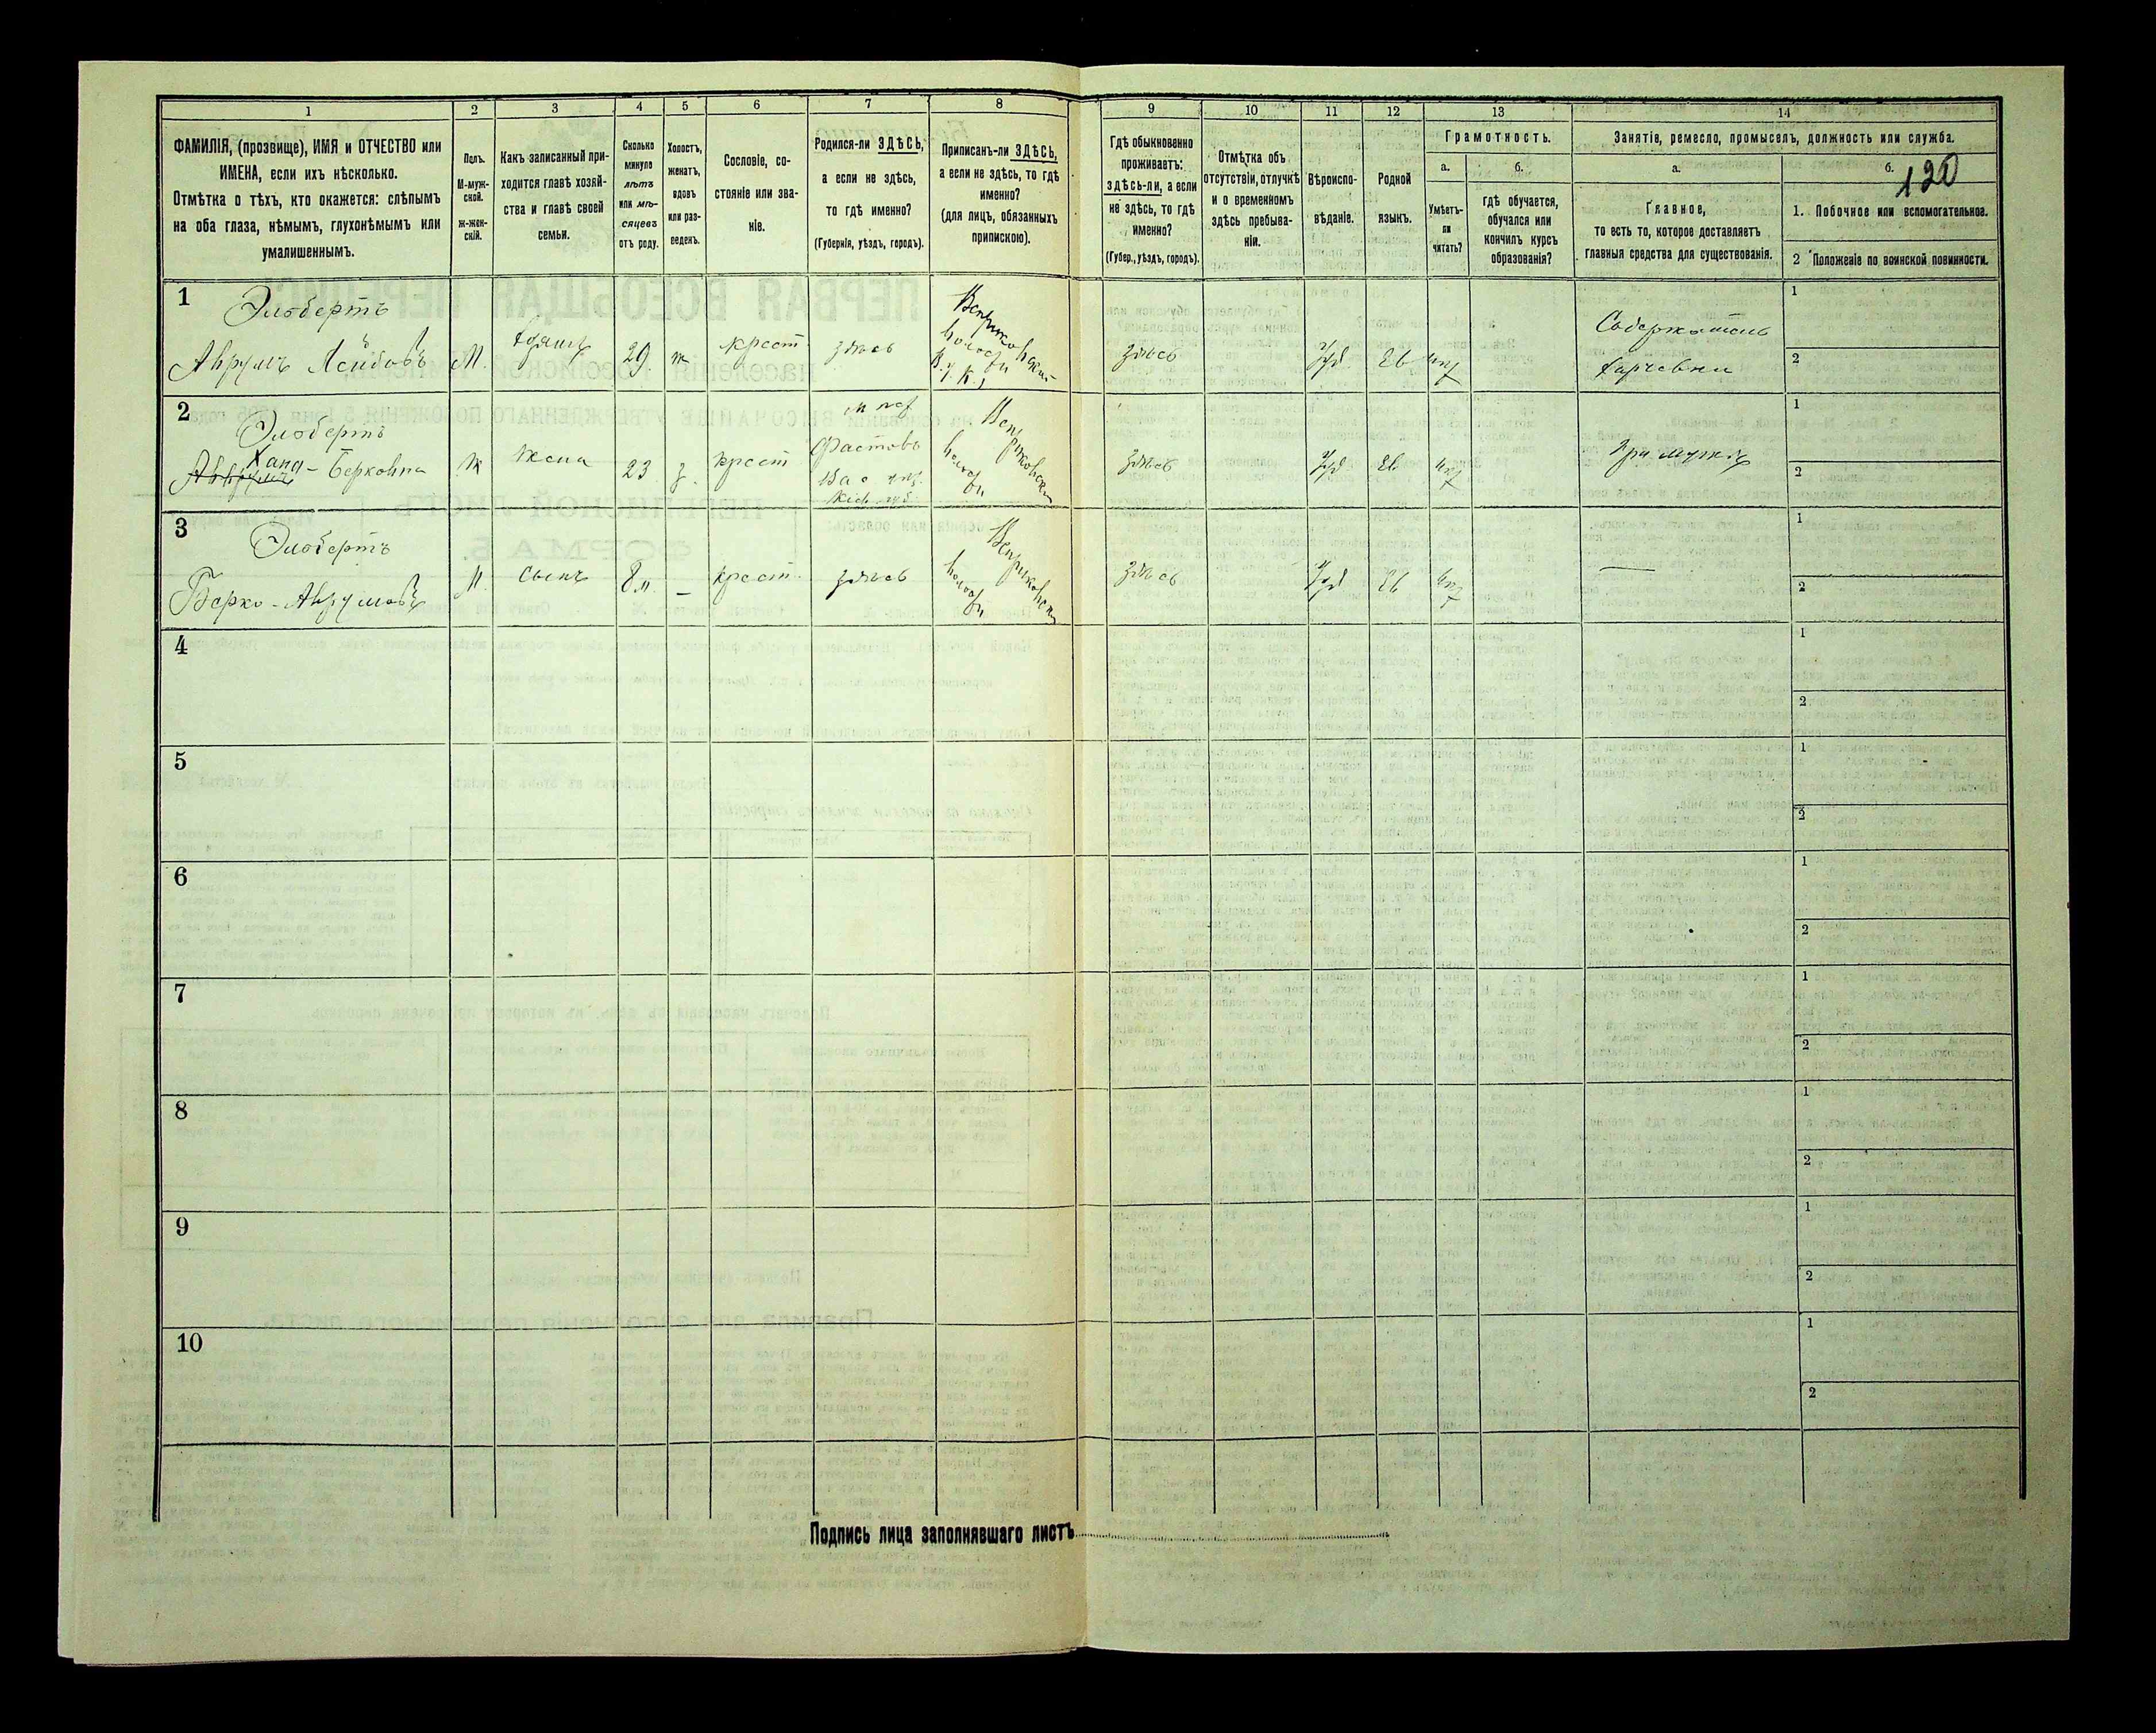 1
2
3
4
5
6
7
8
9
10
11
12
13
14
ФАМИЛІЯ, (прозвище), ИМЯ и ОТЧЕСТВО или
ИМЕНА, если ихъ нѣсколько.
Отмѣтка о тѣхъ, кто окажется: слѣпымъ
на оба глаза, нѣмымъ, глухонѣмымъ или
умалишеннымъ.
Полъ.
М-муж-
ской.
ж-жен-
скій.
Какъ записанный при-
ходится главѣ хозяй-
ства и главѣ своей
семьи.
Сколько
минуло
лѣтъ
или мѣ-
сяцевъ
отъ роду.
Холостъ,
женатъ,
вдовъ
или раз-
веденъ.
Сословіе, со-
стояніе или зва-
ніе.
Родился-ли ЗДѢСЬ,
а если не здѣсь,
то гдѣ именно?
(Губернія, уѣздъ, городъ).
Приписанъ-ли ЗДѢСЬ,
а если не здѣсь, то гдѣ
именно?
(для лицъ, обязанныхъ
припискою).
Гдѣ обыкновенно
проживаетъ:
здѣсь-ли, а если
не здѣсь, то гдѣ
именно?
(Губер., уѣздъ, городъ).
Отмѣтка объ
отсутствіи, отлучкѣ
и о временномъ
здѣсь пребыва-
ніи.
Вѣроиспо-
вѣданіе.
Родной
языкъ.
Грамотность.
а.
б.
Умѣетъ-
ли
читать?
гдѣ обучается,
обучался или
кончилъ курсъ
образованія?
Занятіе, ремесло, промыселъ, должность или служба.
а.
б.
120
Главное,
то есть то, которое доставляетъ
главныя средства для существованія.
1. Побочное или вспомогательное.
2 Положеніе по воинской повинности.
1
Элобертъ
Аврумъ Лейбовъ
М.
29.
ж
крест.
здѣсь
волости
здѣсь
Іуд.
Ев
Содержатель
харчевни
1
2
2
Элобертъ
Хана - Берковна
ж
жена
23
з.
крест
Фастовъ
Вас. уѣз.
Кіев. губ.
волости
здѣсь
Іуд.
Ев.
При мужѣ
1
2
3
Элобертъ
Берко - Аврумовъ
М.
сынъ
8 м.
—
крест.
здѣсь
волости
здѣсь
Іуд
Ев
—
1
2
4
1
2
5
1
2
6
1
2
7
1
2
8
1
2
9
1
2
10
1
2
Подпись лица заполнявшаго листъ